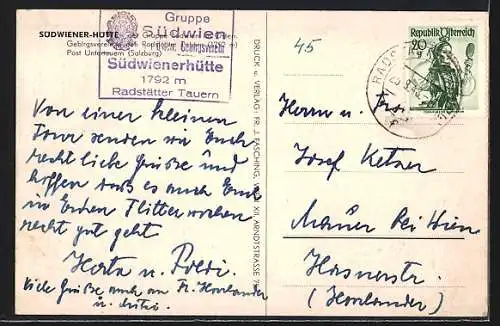 SÜDWIENER-HÜTTE
Gebirgsverein
Post Untertauern (Salzburg)
Gruppe
Südwien
Gebirgsverein
Südwienerhütte
1792 m
Radstätter Tauern
45
Republik Österreich
20
RADST
Von einer kleinen
Tour senden wir Euch
recht liebe Grüsse und
hoffen daß es auch Euch
in Euren Flitterwochen
recht gut geht
Herta u. Poldi.
Viele Grüsse auch an Fr. Havlander
u.
DRUCK u. VERLAG: FR. J. FASCHING, XII, ARNDTSTRASSE
Herrn u. Frau
Josef Ketzer
Mauer bei Wien
Hasnerstr.
(Havlander)